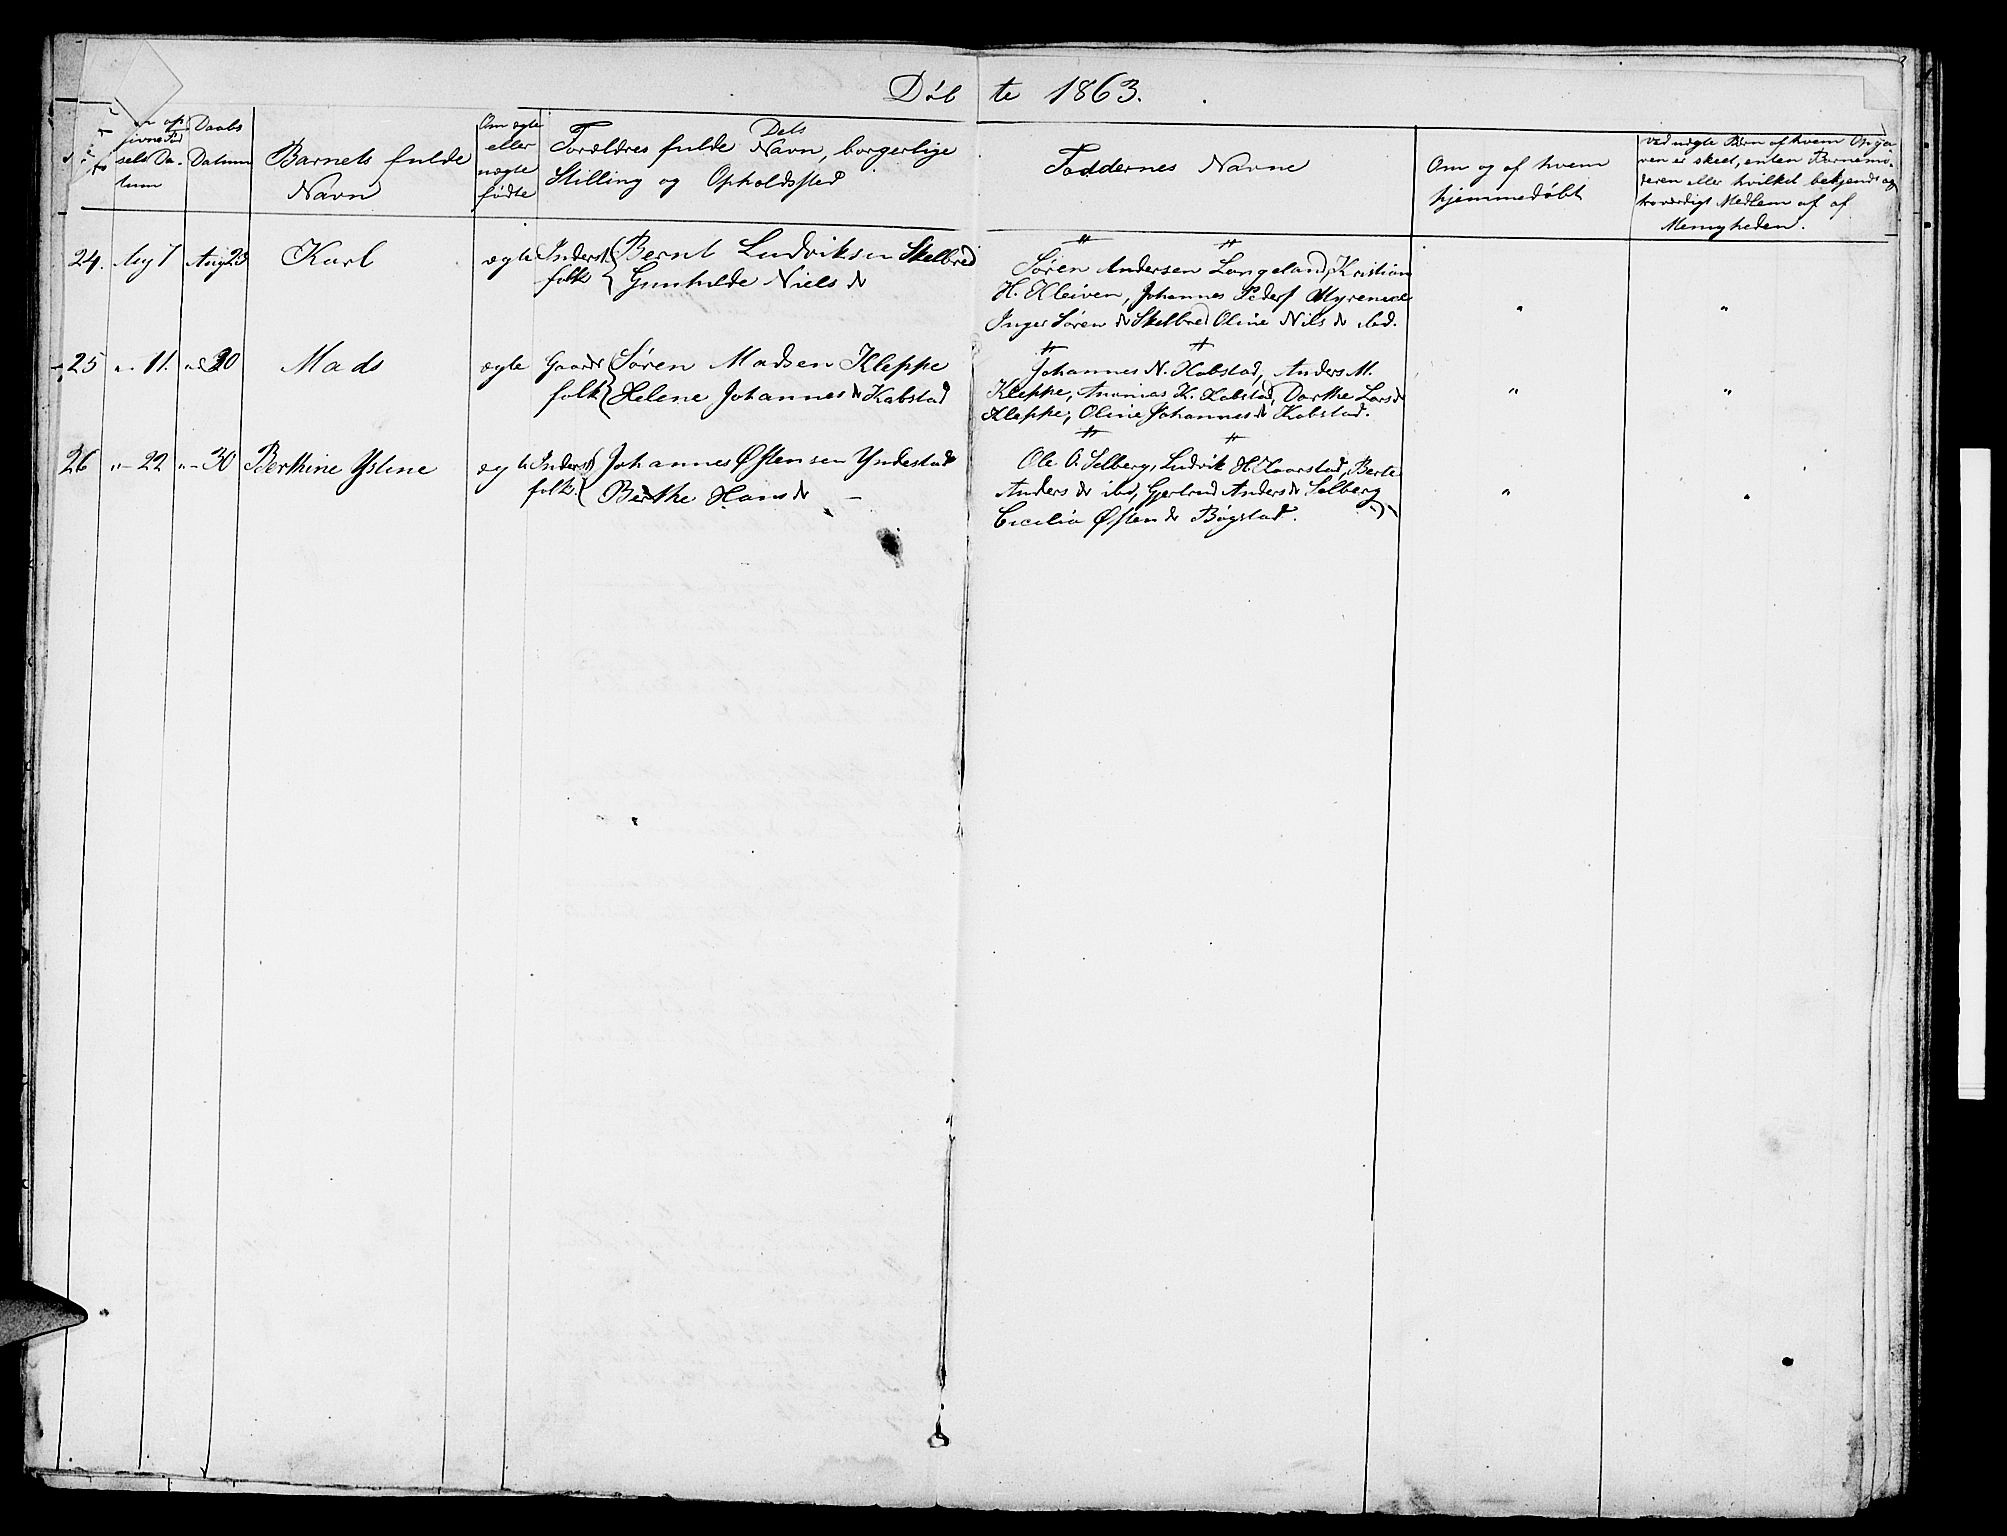 Døbte 1863.
Daabs Datum
Barnets fulde Navn
Om ægte eller uægte fødte
Forældres fulde Navn, Dets borgerlige Stilling og Opholdssted
Faddernes Navne
Om og af hvem hjemmedøbt
Ved uægte Børn af hvem Opgaven er skeet, enten Barnemoderen eller hvilket bekjendt og troværdigt Medlem af af Menigheden.
24. Aug 7 Aug 23 Karl ægte Inderst folk Bernt Ludviksen Skelbred
Gunhilde Niels dr
Søren Andersen Langeland, Kristian
H. Kleiven, Johannes Peders
Inger Søren dr Skelbred Oline Nils dr ibd.
" "
25 " 11. " 30 Mads ægte Gaard folk Søren Madsen Kleppe
Helene Johannes dr Kabstad
Johannes N. Kabstad, Anders M.
Kleppe, Ananias K. Kabstad, Dorthe Lars dr
Kleppe, Oline Johannes dr Kabstad.
" "
26 " 22 " 30 Berthine ægte Inderst folk Johannes Østensen Yndestad
Berthe Hans dr —
Ole O. Selberg, Ludvik H. Haarstad, Berte
Anders dr ibd, Gjertrud Anders dr Selberg
Cecilia Østen dr Bøgstad.
" "